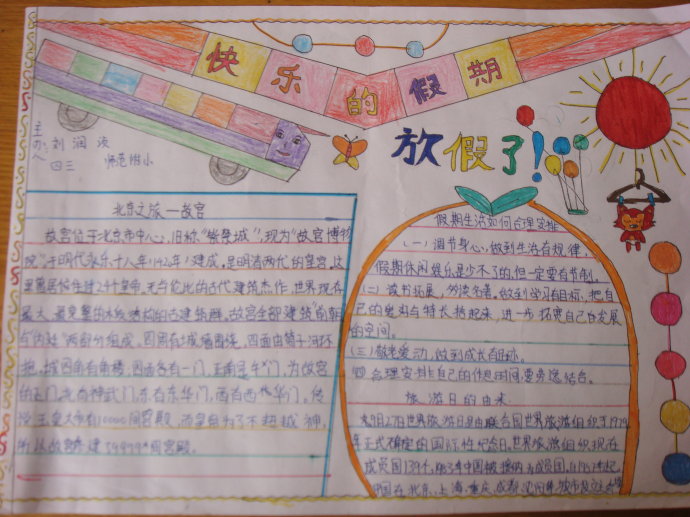 快乐的假期
放假了!
主办人
刘润
四三 师范附小
北京之旅—故宫
故宫位于北京市中心,旧称"紫禁城",现为"故宫博物
院"于明代永乐十八年(1420年)建成,是明清两代的皇宫,这
里曾居住过24个皇帝,无与伦比的古代建筑杰作,世界现存
最大、最完整的木质结构的古建筑群。故宫全部建筑"前朝
与"内廷"两部分组成,四周有城墙围绕,四面由筒子河环
抱,城四角有角楼,四面各有一门,正南是午门,为故宫
的正门,北有神武门,东有东华门,西有西华门。传
说玉皇大帝有10000间宫殿,而皇帝为了不超越神,
所以故宫修建9999间宫殿。
假期生活如何合理安排
(一)调节身心,做到生活有规律,
假期休闲娱乐是少不了的但一定要有节制。
(二)读书拓展,多读名著,做到学习有目标,把自
己的兴趣与特长结起来,进一步拓宽自己的发展
的空间。
(三)敬老爱幼,做到成长有足迹。
四 合理安排自己的作息时间,要劳逸结合。
旅游日的由来
9月27日世界旅游日是由联合国世界旅游组织于1979
年正式确定的国际性纪念日。世界旅游组织现在
成员国139个,1983年中国被接纳为成员国。
中国在北京、上海、重庆、成都、沈阳等城市